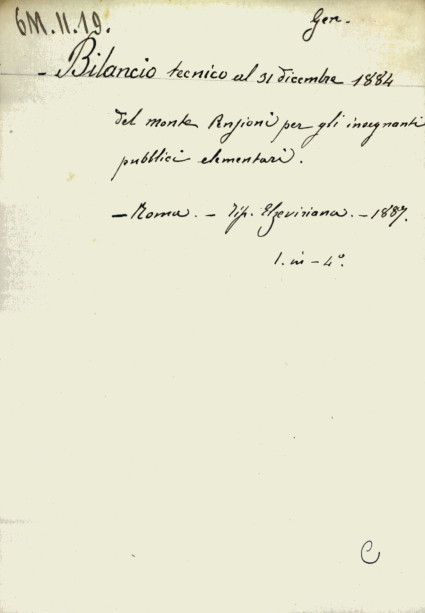 6M.II.19.
Gen.
- Bilancio tecnico al 31 dicembre 1884
del monte Pensioni per gli insegnanti
pubblici elementari.
- Roma. - Tip. Elzeviriana. - 1887.
1. in - 4º.
C